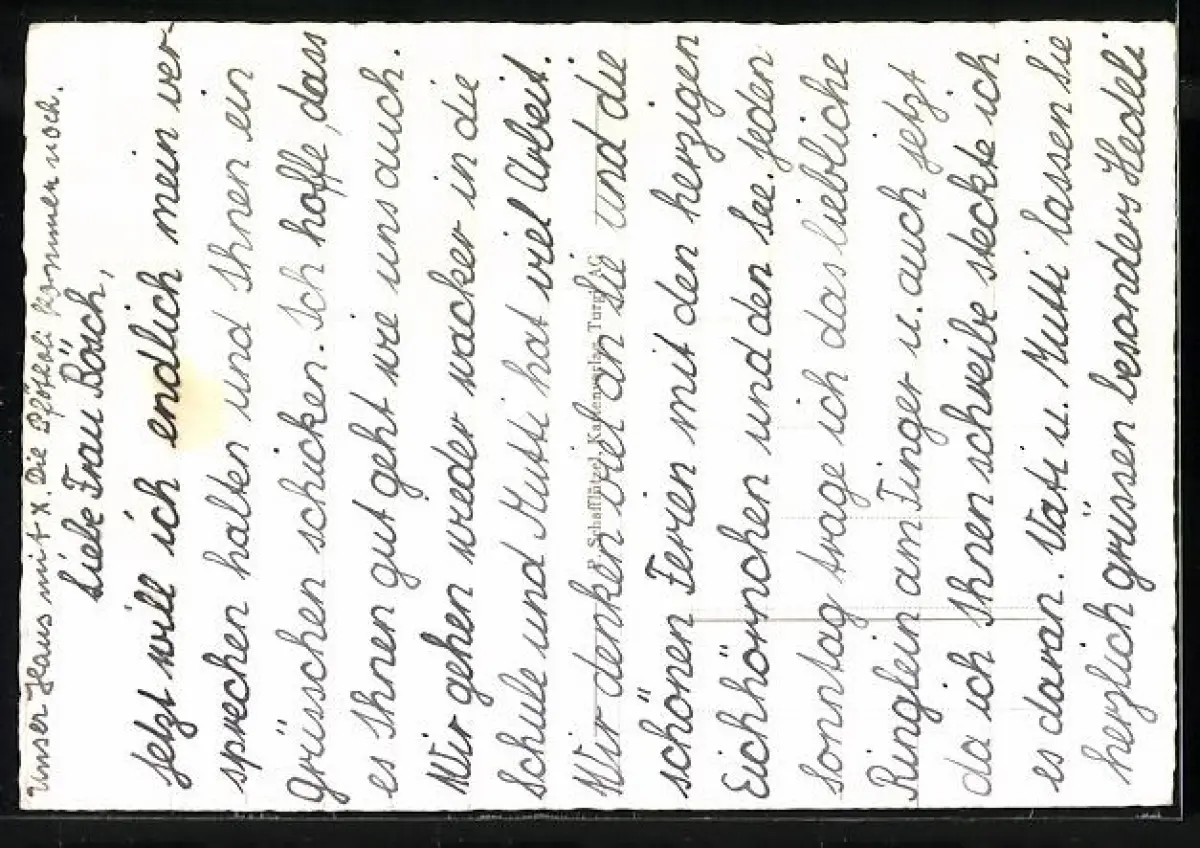 Unser Haus mit X. Die Pföteli kommen noch.
Liebe Frau Bösch,
Jetzt will ich endlich mein ver-
sprechen halten und Ihnen ein
Grüsschen schicken. Ich hoffe, dass
es Ihnen gut geht wie uns auch.
Wir gehen wieder wacker in die
Schule und Mutti hat viel Arbeit.
Wir denken viel an Sie und die
schönen Ferien mit den herzigen
Eichhörnchen und den See. Jeden
Sonntag trage ich das liebliche
Ringlein am Finger u. auch jetzt
da ich Ihnen schreibe stecke ich
es daran. Vati u. Mutti lassen Sie
herzlich grüssen besonders Hedeli
Schafflützel, Kartenverlag, Turgi AG